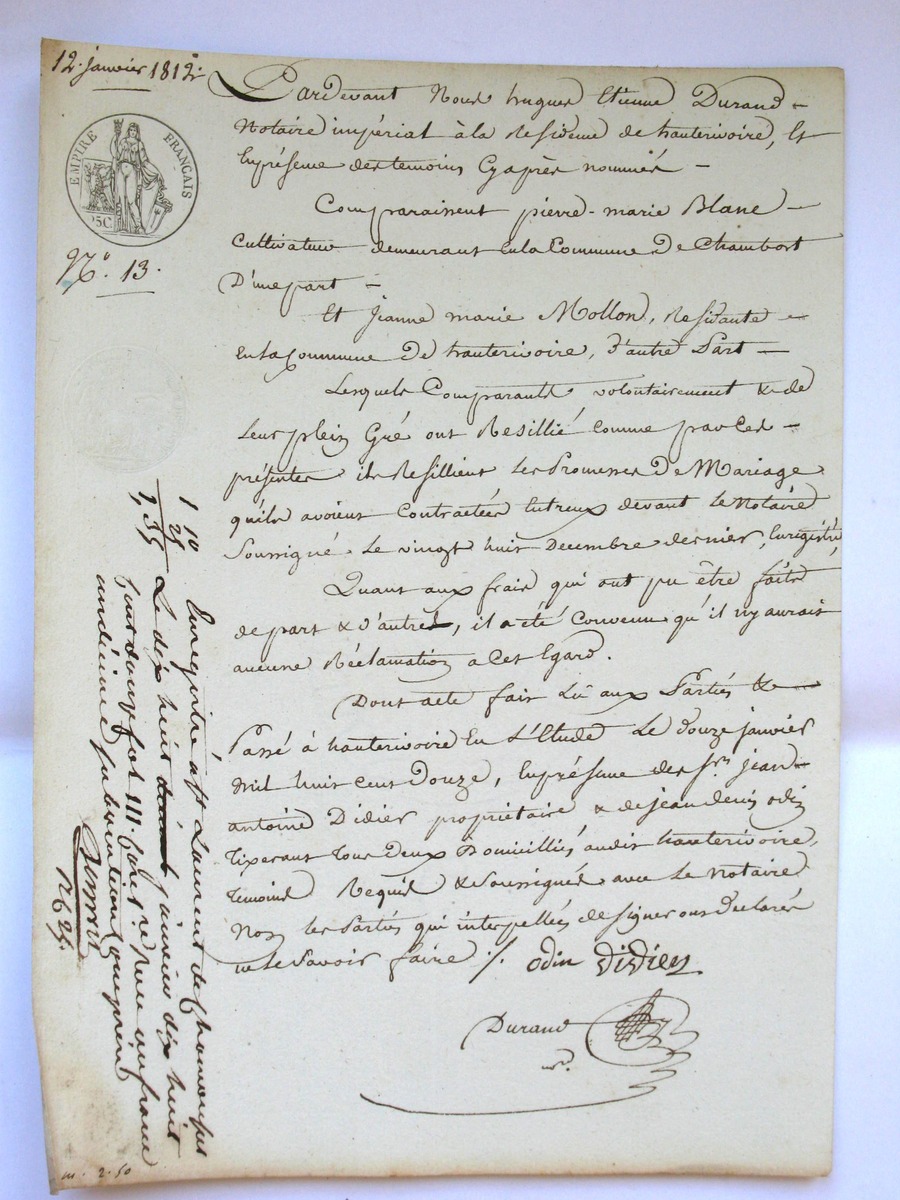 12. janvier 1812.
EMPIRE FRANÇAIS
25C
N.° 13.
Pardevant Nous hugues Etienne Durand -
Notaire impérial à la Residence de hauterivoire, Et
En présence des temoins Cy après nommés -
Comparaissent pierre-marie Blanc -
Cultivateur demeurant En la Commune De Chambost
D'une part -
Et Jeanne marie Mollon, Residante -
En la Commune De hauterivoire, d'autre Part -
Lesquels Comparants volontairement & de
Leur plein Gré ont Resillié Comme par Ces -
présentes ils Resillient Les Promesses De Mariage
qu'ils avoient Contractées Entreux devant Le Notaire
Soussigné Le vingt huit Decembre dernier, Enregistré,
Quant aux frais qui ont pu être faits
de part & d'autre, il a été Convenu qu'il n'y aurait
aucune Réclamation a Cet Egard.
Dont acte fait Lû aux Parties & -
Passé à hauterivoire En L'Etude Le Douze janvier
Mil huit Cent Douze, En présence des Srs. jean -
antoine Didier propriétaire & de jean denis odin
Tixerant Tous Deux Domiciliés audit hauterivoire,
Temoins Requis & Soussignés avec Le Notaire
Non les Parties qui interpellées de signer ont Déclarés
ne Le Savoir faire ./. odin Didier
Durand
nre.
1 10
25
1, 35
Enregistré à St Laurent de Chamousset
Le dix huit janvier dix huit
cent douze fol 111. Case 1re. Reçu un franc
un décime, subvention que prend
N 625.
m. 2.50